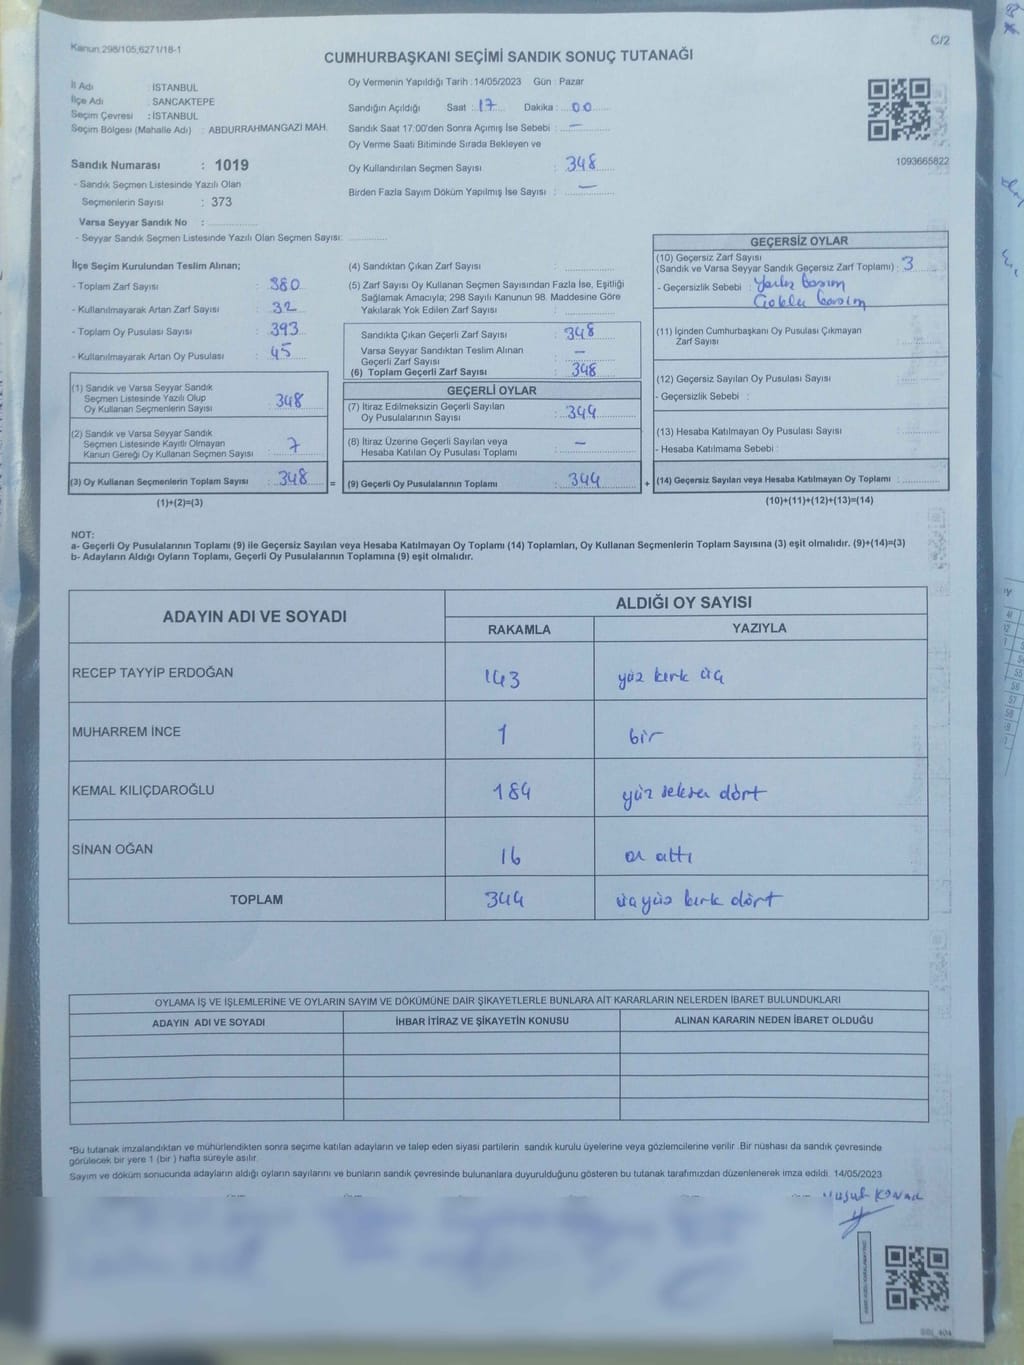 Kanun 298/105,6271/18-1
C/2
CUMHURBAŞKANI SEÇİMİ SANDIK SONUÇ TUTANAĞI
İl Adı : İSTANBUL
İlçe Adı : SANCAKTEPE
Seçim Çevresi : İSTANBUL
Seçim Bölgesi (Mahalle Adı) : ABDURRAHMANGAZİ MAH.
Sandık Numarası : 1019
- Sandık Seçmen Listesinde Yazılı Olan
Seçmenlerin Sayısı : 373
Varsa Seyyar Sandık No :
- Seyyar Sandık Seçmen Listesinde Yazılı Olan Seçmen Sayısı:
Oy Vermenin Yapıldığı Tarih : 14/05/2023 Gün : Pazar
Sandığın Açıldığı Saat : 17 Dakika : 00
Sandık Saat 17:00'den Sonra Açımış İse Sebebi : —
Oy Verme Saati Bitiminde Sırada Bekleyen ve
Oy Kullandırılan Seçmen Sayısı : 348
Birden Fazla Sayım Döküm Yapılmış İse Sayısı : —
1093665822
İlçe Seçim Kurulundan Teslim Alınan;
- Toplam Zarf Sayısı : 380
- Kullanılmayarak Artan Zarf Sayısı : 32
- Toplam Oy Pusulası Sayısı : 393
- Kullanılmayarak Artan Oy Pusulası : 45
(1) Sandık ve Varsa Seyyar Sandık
Seçmen Listesinde Yazılı Olup
Oy Kullanan Seçmenlerin Sayısı : 348
(2) Sandık ve Varsa Seyyar Sandık
Seçmen Listesinde Kayıtlı Olmayan
Kanun Gereği Oy Kullanan Seçmen Sayısı : 7
(3) Oy Kullanan Seçmenlerin Toplam Sayısı : 348 =
(1)+(2)=(3)
(4) Sandıktan Çıkan Zarf Sayısı :
(5) Zarf Sayısı Oy Kullanan Seçmen Sayısından Fazla İse, Eşitliği
Sağlamak Amacıyla; 298 Sayılı Kanunun 98. Maddesine Göre
Yakılarak Yok Edilen Zarf Sayısı :
Sandıkta Çıkan Geçerli Zarf Sayısı : 348
Varsa Seyyar Sandıktan Teslim Alınan
Geçerli Zarf Sayısı : —
(6) Toplam Geçerli Zarf Sayısı : 348
GEÇERLİ OYLAR
(7) İtiraz Edilmeksizin Geçerli Sayılan
Oy Pusulalarının Sayısı : 344
(8) İtiraz Üzerine Geçerli Sayılan veya
Hesaba Katılan Oy Pusulası Toplamı : —
(9) Geçerli Oy Pusulalarının Toplamı : 344 +
GEÇERSİZ OYLAR
(10) Geçersiz Zarf Sayısı
(Sandık ve Varsa Seyyar Sandık Geçersiz Zarf Toplamı) : 3
- Geçersizlik Sebebi :
(11) İçinden Cumhurbaşkanı Oy Pusulası Çıkmayan
Zarf Sayısı :
(12) Geçersiz Sayılan Oy Pusulası Sayısı :
- Geçersizlik Sebebi :
(13) Hesaba Katılmayan Oy Pusulası Sayısı :
- Hesaba Katılmama Sebebi :
(14) Geçersiz Sayılan veya Hesaba Katılmayan Oy Toplamı :
(10)+(11)+(12)+(13)=(14)
NOT:
a- Geçerli Oy Pusulalarının Toplamı (9) ile Geçersiz Sayılan veya Hesaba Katılmayan Oy Toplamı (14) Toplamları, Oy Kullanan Seçmenlerin Toplam Sayısına (3) eşit olmalıdır. (9)+(14)=(3)
b- Adayların Aldığı Oyların Toplamı, Geçerli Oy Pusulalarının Toplamına (9) eşit olmalıdır.
ADAYIN ADI VE SOYADI
ALDIĞI OY SAYISI
RAKAMLA YAZIYLA
RECEP TAYYİP ERDOĞAN 143 yüz kırk üç
MUHARREM İNCE 1 bir
KEMAL KILIÇDAROĞLU 184 yüz seksen dört
SİNAN OĞAN 16 on altı
TOPLAM 344 üçyüz kırk dört
OYLAMA İŞ VE İŞLEMLERİNE VE OYLARIN SAYIM VE DÖKÜMÜNE DAİR ŞİKAYETLERLE BUNLARA AİT KARARLARIN NELERDEN İBARET BULUNDUKLARI
ADAYIN ADI VE SOYADI İHBAR İTİRAZ VE ŞİKAYETİN KONUSU ALINAN KARARIN NEDEN İBARET OLDUĞU
*Bu tutanak imzalandıktan ve mühürlendikten sonra seçime katılan adayların ve talep eden siyasi partilerin sandık kurulu üyelerine veya gözlemcilerine verilir. Bir nüshası da sandık çevresinde
görülecek bir yere 1 (bir ) hafta süreyle asılır.
Sayım ve döküm sonucunda adayların aldığı oyların sayılarını ve bunların sandık çevresinde bulunanlara duyurulduğunu gösteren bu tutanak tarafımızdan düzenlenerek imza edildi. 14/05/2023